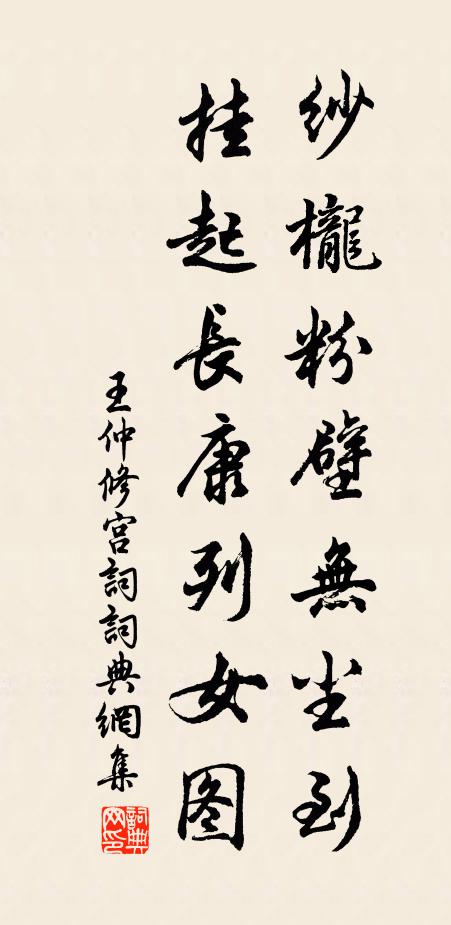 纱櫳粉壁無尘到
挂起長康列女图
王仲修宫詞詞典網集
詞典
网印